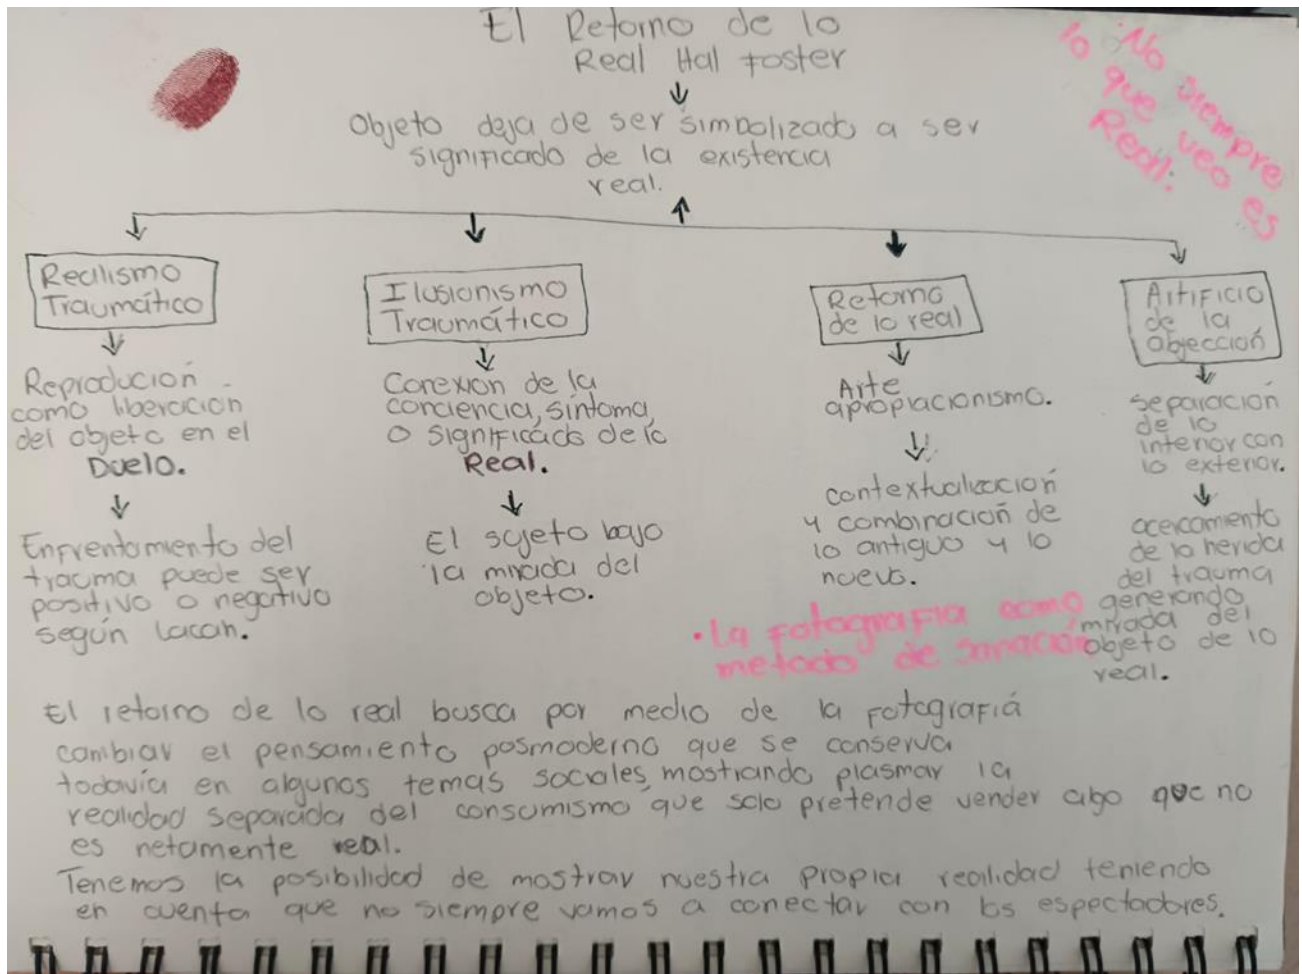 El Retorno de lo
Real Hal Foster
No siempre
lo que veo es
Real.
Objeto deja de ser simbolizado a ser
significado de la existencia
real.
Realismo
Traumático
Reproducion
como liberacion
del objeto en el
Duelo.
Enfrentamiento del
trauma puede ser
positivo o negativo
según Lacan.
Ilusionismo
Traumático
Conexion de la
conciencia, síntoma,
o significado de lo
Real.
El sujeto bajo
la mirada del
objeto.
Retorno
de lo real
Arte
apropiacionismo.
contextualización
y combinación de
lo antiguo y lo
nuevo.
Artificio
de la
abjección
separación
de lo
interior con
lo exterior.
acercamiento
de la herida
del trauma
generando
mirada del
objeto de lo
real.
• La fotografia como
metodo de sanación
El retorno de lo real busca por medio de la fotografiá
cambiar el pensamiento posmoderno que se conserva
todavía en algunos temas sociales, mostrando plasmar la
realidad separada del consumismo que solo pretende vender algo que no
es netamente real.
Tenemos la posibilidad de mostrar nuestra propia realidad teniendo
en cuenta que no siempre vamos a conectar con los espectadores.